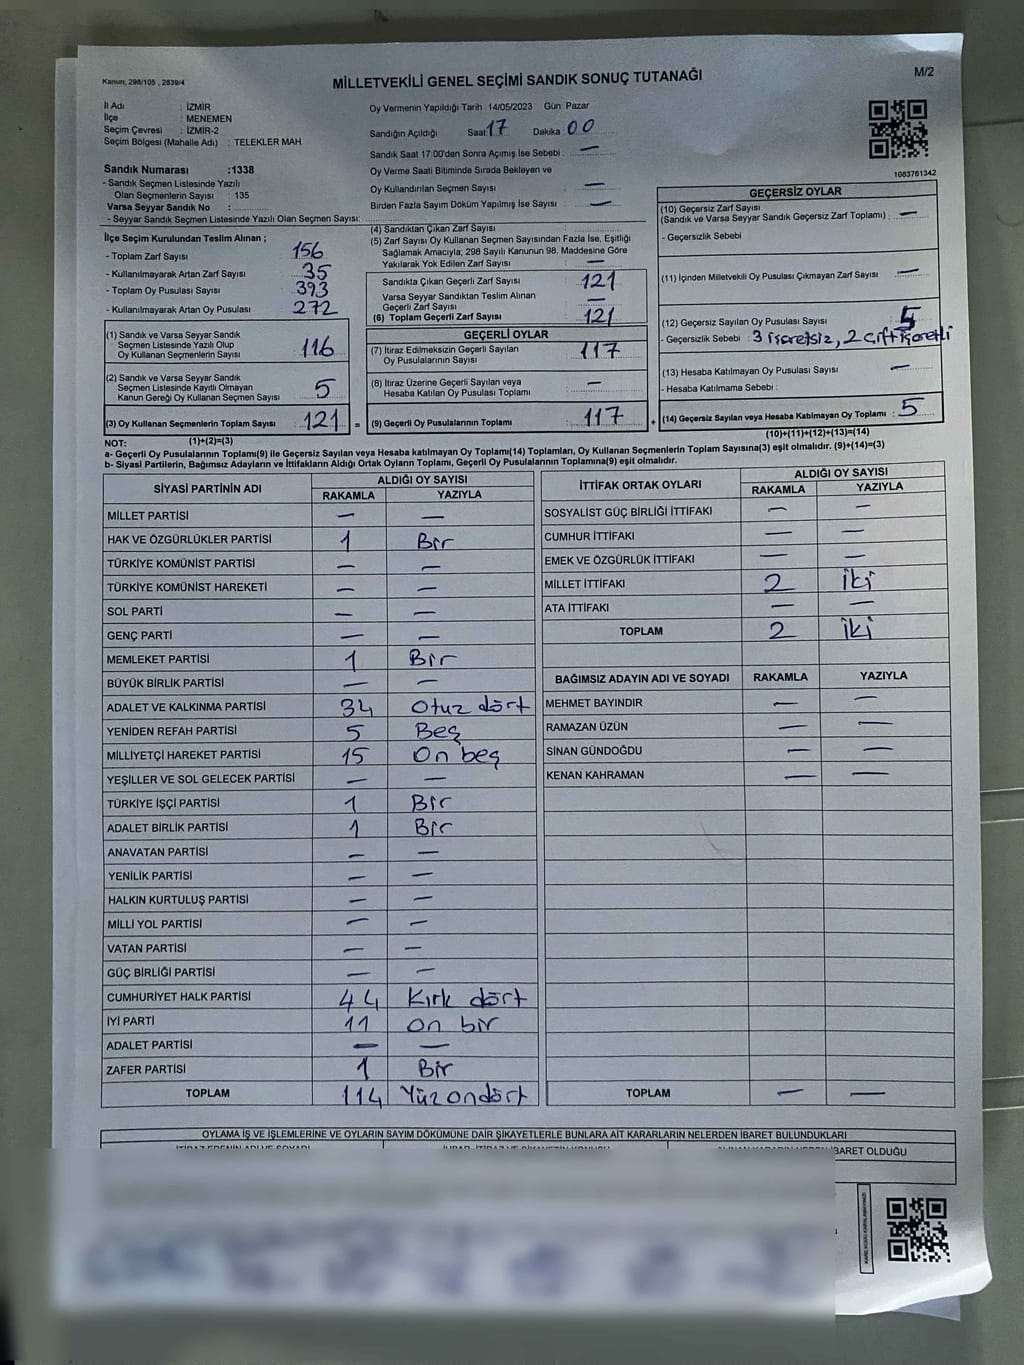 Kanun, 298/105 , 2839/4
MİLLETVEKİLİ GENEL SEÇİMİ SANDIK SONUÇ TUTANAĞI
M/2
İl Adı : İZMİR
İlçe : MENEMEN
Seçim Çevresi : İZMİR-2
Seçim Bölgesi (Mahalle Adı) : TELEKLER MAH
Sandık Numarası :1338
- Sandık Seçmen Listesinde Yazılı
Olan Seçmenlerin Sayısı : 135
Varsa Seyyar Sandık No :
- Seyyar Sandık Seçmen Listesinde Yazılı Olan Seçmen Sayısı:
Oy Vermenin Yapıldığı Tarih :14/05/2023 Gün: Pazar
Sandığın Açıldığı Saat: 17 Dakika 00
Sandık Saat 17:00'den Sonra Açımış İse Sebebi : —
Oy Verme Saati Bitiminde Sırada Bekleyen ve
Oy Kullandırılan Seçmen Sayısı : —
Birden Fazla Sayım Döküm Yapılmış İse Sayısı : —
1083761342
İlçe Seçim Kurulundan Teslim Alınan ;
- Toplam Zarf Sayısı : 156
- Kullanılmayarak Artan Zarf Sayısı : 35
- Toplam Oy Pusulası Sayısı : 393
- Kullanılmayarak Artan Oy Pusulası : 272
(1) Sandık ve Varsa Seyyar Sandık
Seçmen Listesinde Yazılı Olup
Oy Kullanan Seçmenlerin Sayısı : 116
(2) Sandık ve Varsa Seyyar Sandık
Seçmen Listesinde Kayıtlı Olmayan
Kanun Gereği Oy Kullanan Seçmen Sayısı : 5
(3) Oy Kullanan Seçmenlerin Toplam Sayısı : 121 =
(1)+(2)=(3)
(4) Sandıktan Çıkan Zarf Sayısı
(5) Zarf Sayısı Oy Kullanan Seçmen Sayısından Fazla İse, Eşitliği
Sağlamak Amacıyla, 298 Sayılı Kanunun 98. Maddesine Göre
Yakılarak Yok Edilen Zarf Sayısı : —
Sandıkta Çıkan Geçerli Zarf Sayısı : 121
Varsa Seyyar Sandıktan Teslim Alınan
Geçerli Zarf Sayısı : —
(6) Toplam Geçerli Zarf Sayısı : 121
GEÇERLİ OYLAR
(7) İtiraz Edilmeksizin Geçerli Sayılan
Oy Pusulalarının Sayısı : 117
(8) İtiraz Üzerine Geçerli Sayılan veya
Hesaba Katılan Oy Pusulası Toplamı : —
(9) Geçerli Oy Pusulalarının Toplamı : 117 +
GEÇERSİZ OYLAR
(10) Geçersiz Zarf Sayısı
(Sandık ve Varsa Seyyar Sandık Geçersiz Zarf Toplamı) : —
- Geçersizlik Sebebi :
(11) İçinden Milletvekili Oy Pusulası Çıkmayan Zarf Sayısı : —
(12) Geçersiz Sayılan Oy Pusulası Sayısı : 5
- Geçersizlik Sebebi : 3 işaretsiz, 2 çift işaretli
(13) Hesaba Katılmayan Oy Pusulası Sayısı : —
- Hesaba Katılmama Sebebi :
(14) Geçersiz Sayılan veya Hesaba Katılmayan Oy Toplamı : 5
(10)+(11)+(12)+(13)=(14)
NOT:
a- Geçerli Oy Pusulalarının Toplamı(9) ile Geçersiz Sayılan veya Hesaba katılmayan Oy Toplamı(14) Toplamları, Oy Kullanan Seçmenlerin Toplam Sayısına(3) eşit olmalıdır. (9)+(14)=(3)
b- Siyasi Partilerin, Bağımsız Adayların ve İttifakların Aldığı Ortak Oyların Toplamı, Geçerli Oy Pusulalarının Toplamına(9) eşit olmalıdır.
SİYASİ PARTİNİN ADI ALDIĞI OY SAYISI
RAKAMLA YAZIYLA
MİLLET PARTİSİ — —
HAK VE ÖZGÜRLÜKLER PARTİSİ 1 Bir
TÜRKİYE KOMÜNİST PARTİSİ — —
TÜRKİYE KOMÜNİST HAREKETİ — —
SOL PARTİ — —
GENÇ PARTİ — —
MEMLEKET PARTİSİ 1 Bir
BÜYÜK BİRLİK PARTİSİ — —
ADALET VE KALKINMA PARTİSİ 34 Otuz dört
YENİDEN REFAH PARTİSİ 5 Beş
MİLLİYETÇİ HAREKET PARTİSİ 15 On beş
YEŞİLLER VE SOL GELECEK PARTİSİ — —
TÜRKİYE İŞÇİ PARTİSİ 1 Bir
ADALET BİRLİK PARTİSİ 1 Bir
ANAVATAN PARTİSİ — —
YENİLİK PARTİSİ — —
HALKIN KURTULUŞ PARTİSİ — —
MİLLİ YOL PARTİSİ — —
VATAN PARTİSİ — —
GÜÇ BİRLİĞİ PARTİSİ — —
CUMHURİYET HALK PARTİSİ 44 Kırk dört
İYİ PARTİ 11 on bir
ADALET PARTİSİ — —
ZAFER PARTİSİ 1 Bir
TOPLAM 114 Yüz ondört
İTTİFAK ORTAK OYLARI ALDIĞI OY SAYISI
RAKAMLA YAZIYLA
SOSYALİST GÜÇ BİRLİĞİ İTTİFAKI — —
CUMHUR İTTİFAKI — —
EMEK VE ÖZGÜRLÜK İTTİFAKI — —
MİLLET İTTİFAKI 2 İki
ATA İTTİFAKI — —
TOPLAM 2 İki
BAĞIMSIZ ADAYIN ADI VE SOYADI RAKAMLA YAZIYLA
MEHMET BAYINDIR — —
RAMAZAN ÜZÜN — —
SİNAN GÜNDOĞDU — —
KENAN KAHRAMAN — —
TOPLAM — —
OYLAMA İŞ VE İŞLEMLERİNE VE OYLARIN SAYIM DÖKÜMÜNE DAİR ŞİKAYETLERLE BUNLARA AİT KARARLARIN NELERDEN İBARET BULUNDUKLARI
İBARET OLDUĞU